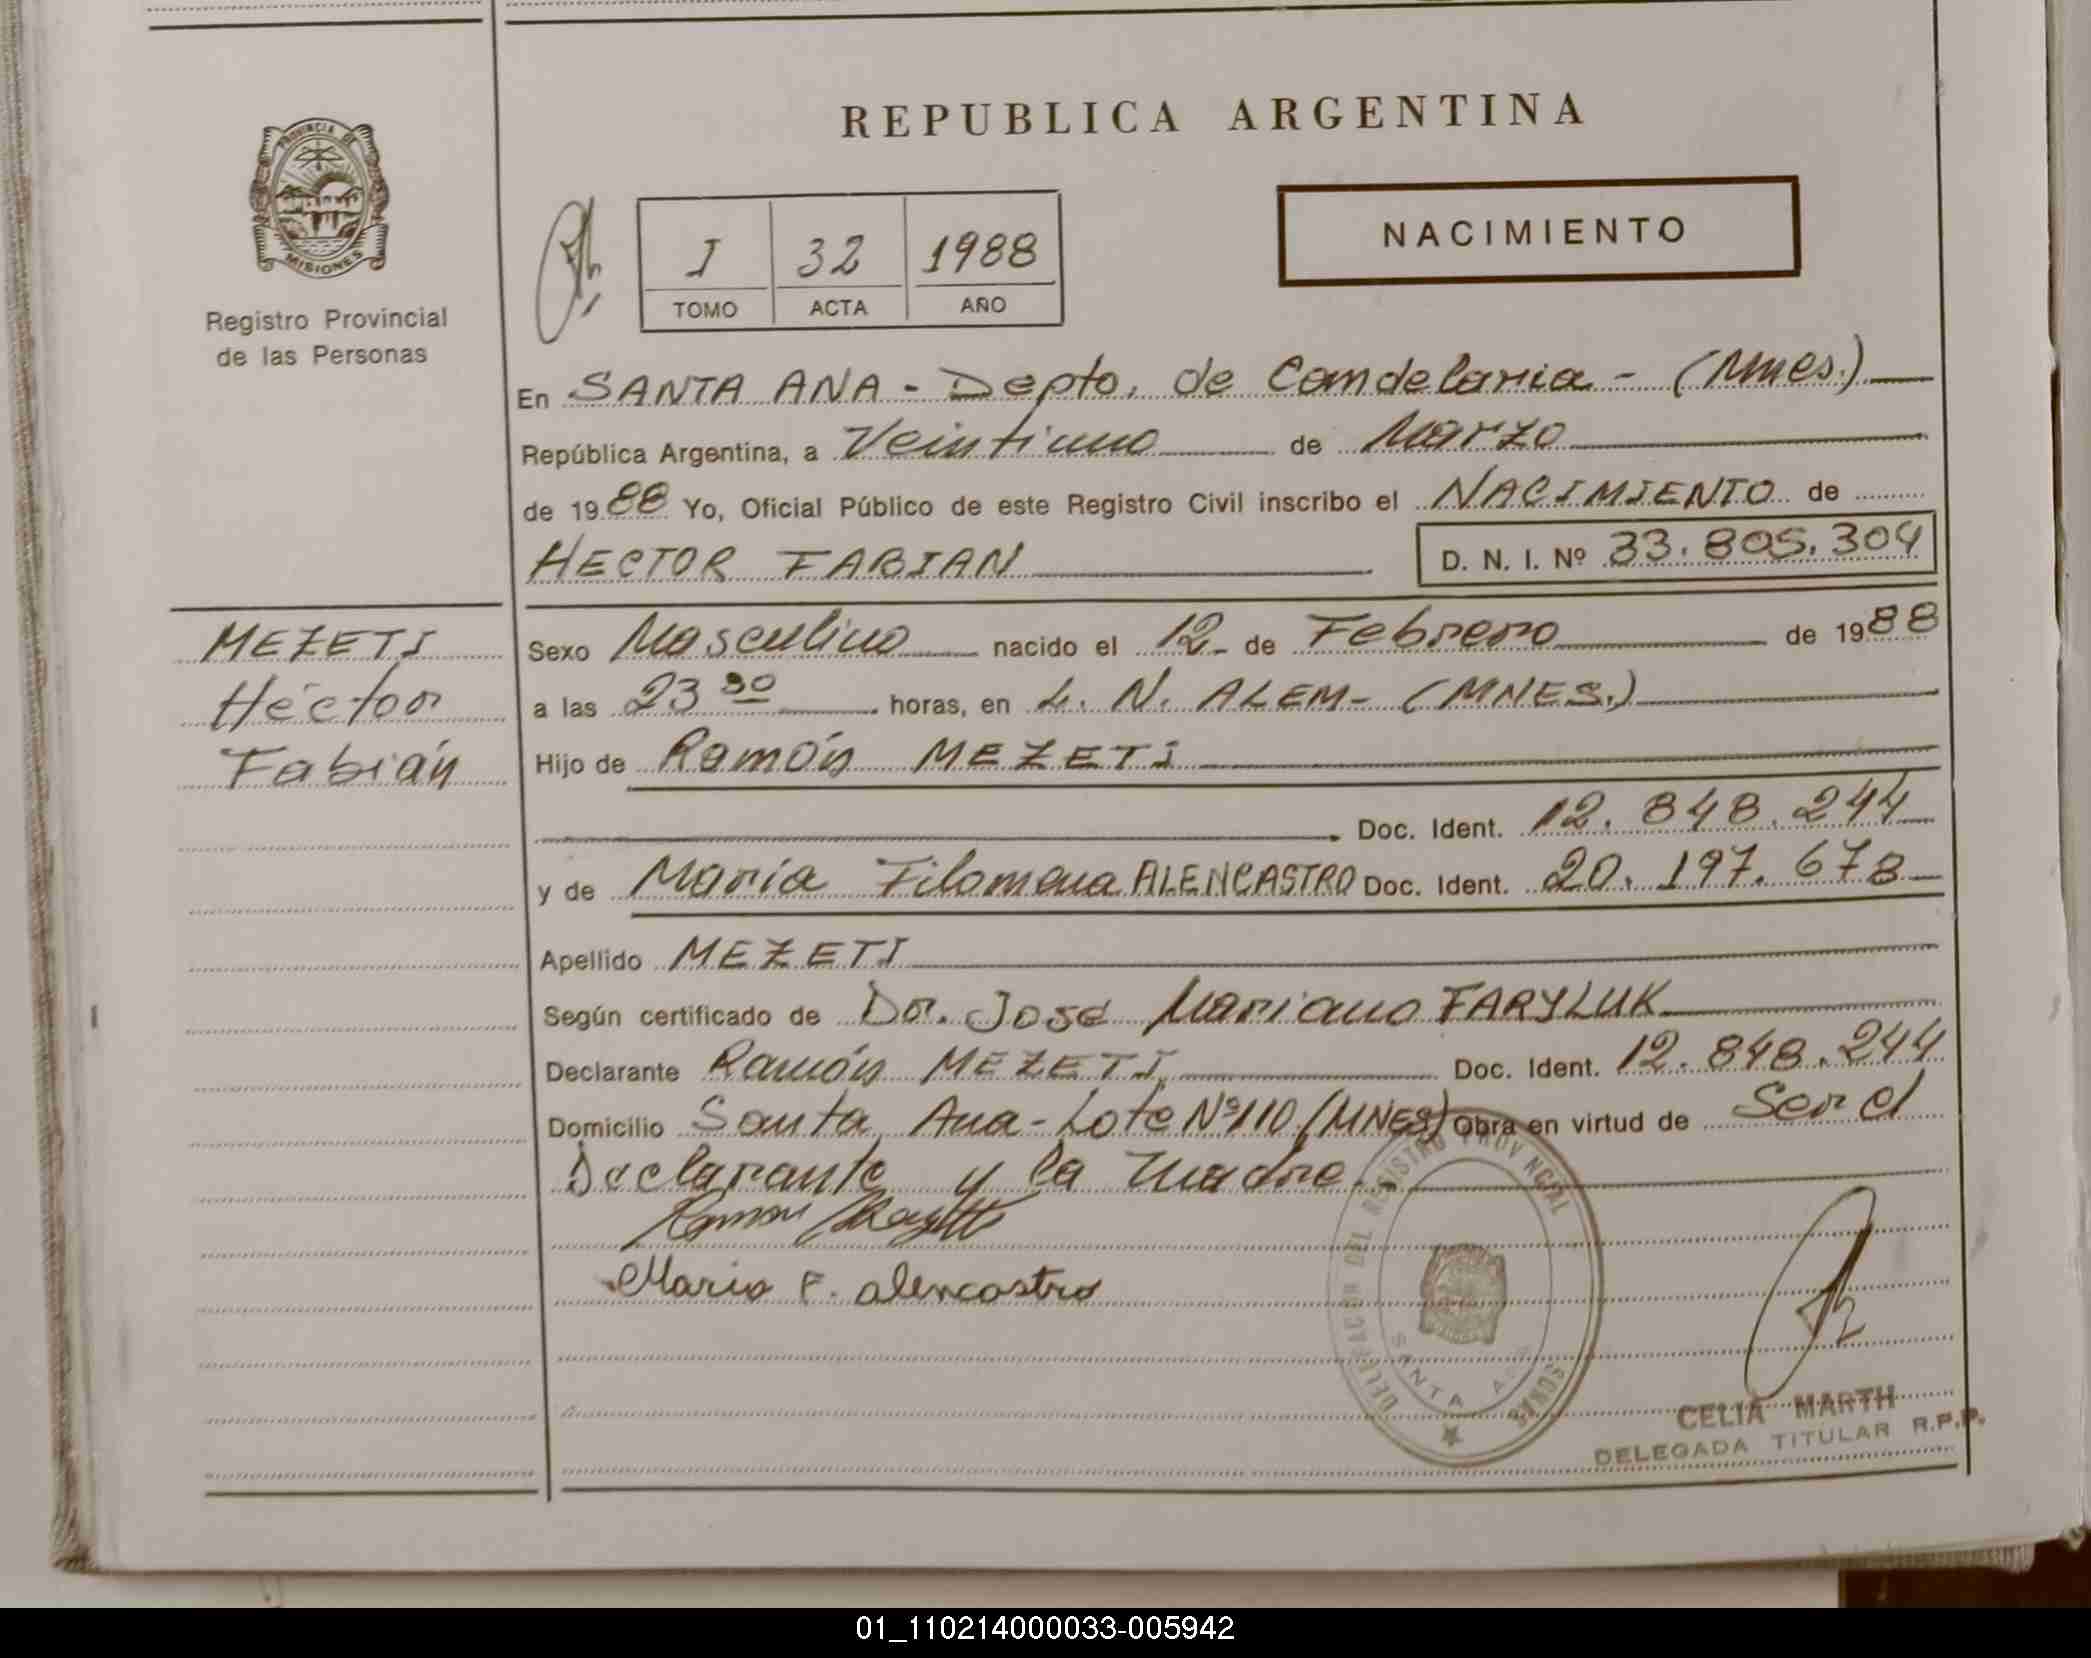 REPUBLICA ARGENTINA
PROVINCIA DE
MISIONES
Registro Provincial
de las Personas
I 32 1988
TOMO ACTA AÑO
NACIMIENTO
En SANTA ANA - Depto. de Candelaria - (Mnes.)
República Argentina, a Veintiuno de Marzo
de 1988 Yo, Oficial Público de este Registro Civil inscribo el NACIMIENTO de
HECTOR FABIAN D. N. I. Nº 33.805.304
MEZETI
Héctor
Fabián
Sexo Masculino nacido el 12 de Febrero de 1988
a las 23 30 horas, en L. N. ALEM - (MNES.)
Hijo de Ramón MEZETI
Doc. Ident. 12.848.244
y de María Filomena ALENCASTRO Doc. Ident. 20.197.678
Apellido MEZETI
Según certificado de Dr. José Mariano FARYLUK
Declarante Ramón MEZETI Doc. Ident. 12.848.244
Domicilio Santa Ana - Lote Nº 110 (MNES) Obra en virtud de Ser el
Declarante y la madre.
Maria F. alencastro
DELEGACION DEL REGISTRO PROVINCIAL
SANTA ANA
CELIA MARTH
DELEGADA TITULAR R.P.P.
01_110214000033-005942